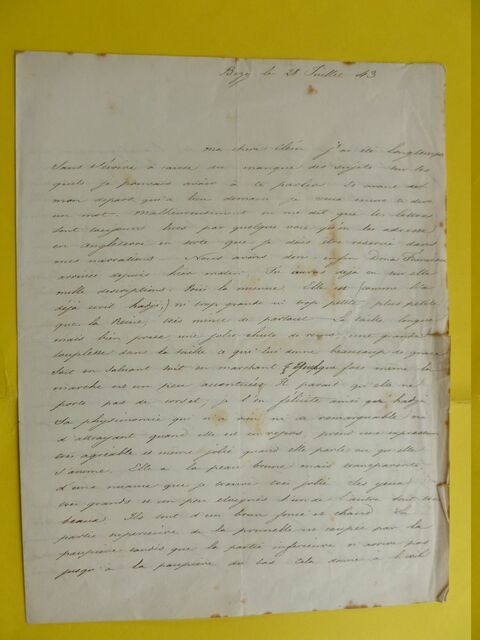 Bizy le 28 Juillet 43
ma chère Clém j'ai été longtemps
sans t'écrire à cause du manque des sujets sur les
quels je pouvais avoir à te parler. Et avant
mon départ qui a lieu demain je veux encore te dire
un mot. Malheureusement on me dit que les lettres
sont toujours lues par quelques uns qu'on les adresse
en Angleterre en sorte que je dois être réservé dans
mes narrations. Nous avons donc enfin Dona Francisca
arrivée depuis hier matin. Tu auras déjà eu sur elle
mille descriptions. Voici la mienne. Elle est (comme l'a
déjà écrit hadji,) ni trop grande ni trop petite, plus petite
que la Reine, très mince de partout. La taille longue
mais bien prise une jolie chute de reins, une grande
souplesse dans la taille ce qui lui donne beaucoup de grace
soit en saluant soit en marchant quoique fois même la
marche est un peu accentuée. Il parait qu'elle ne
porte pas de corset; je l'en félicite ainsi que hadji.
Sa physionomie qui n'a rien de remarquable ni
d'attrayant quand elle est en repos, prend une expression
très agréable et même jolie quand elle parle ou qu'elle
s'anime. Elle a la peau brune mais transparente
d'une nuance que je trouve très jolie. Les yeux
très grands et un peu éloignés l'un de l'autre sont très
beaux. Ils sont d'un brun foncé et chaud. La
partie supérieure de la prunelle est coupée par la
paupière tandis que la partie inférieure n'arrive pas
jusqu'à la paupière du bas. Cela donne à l'œil